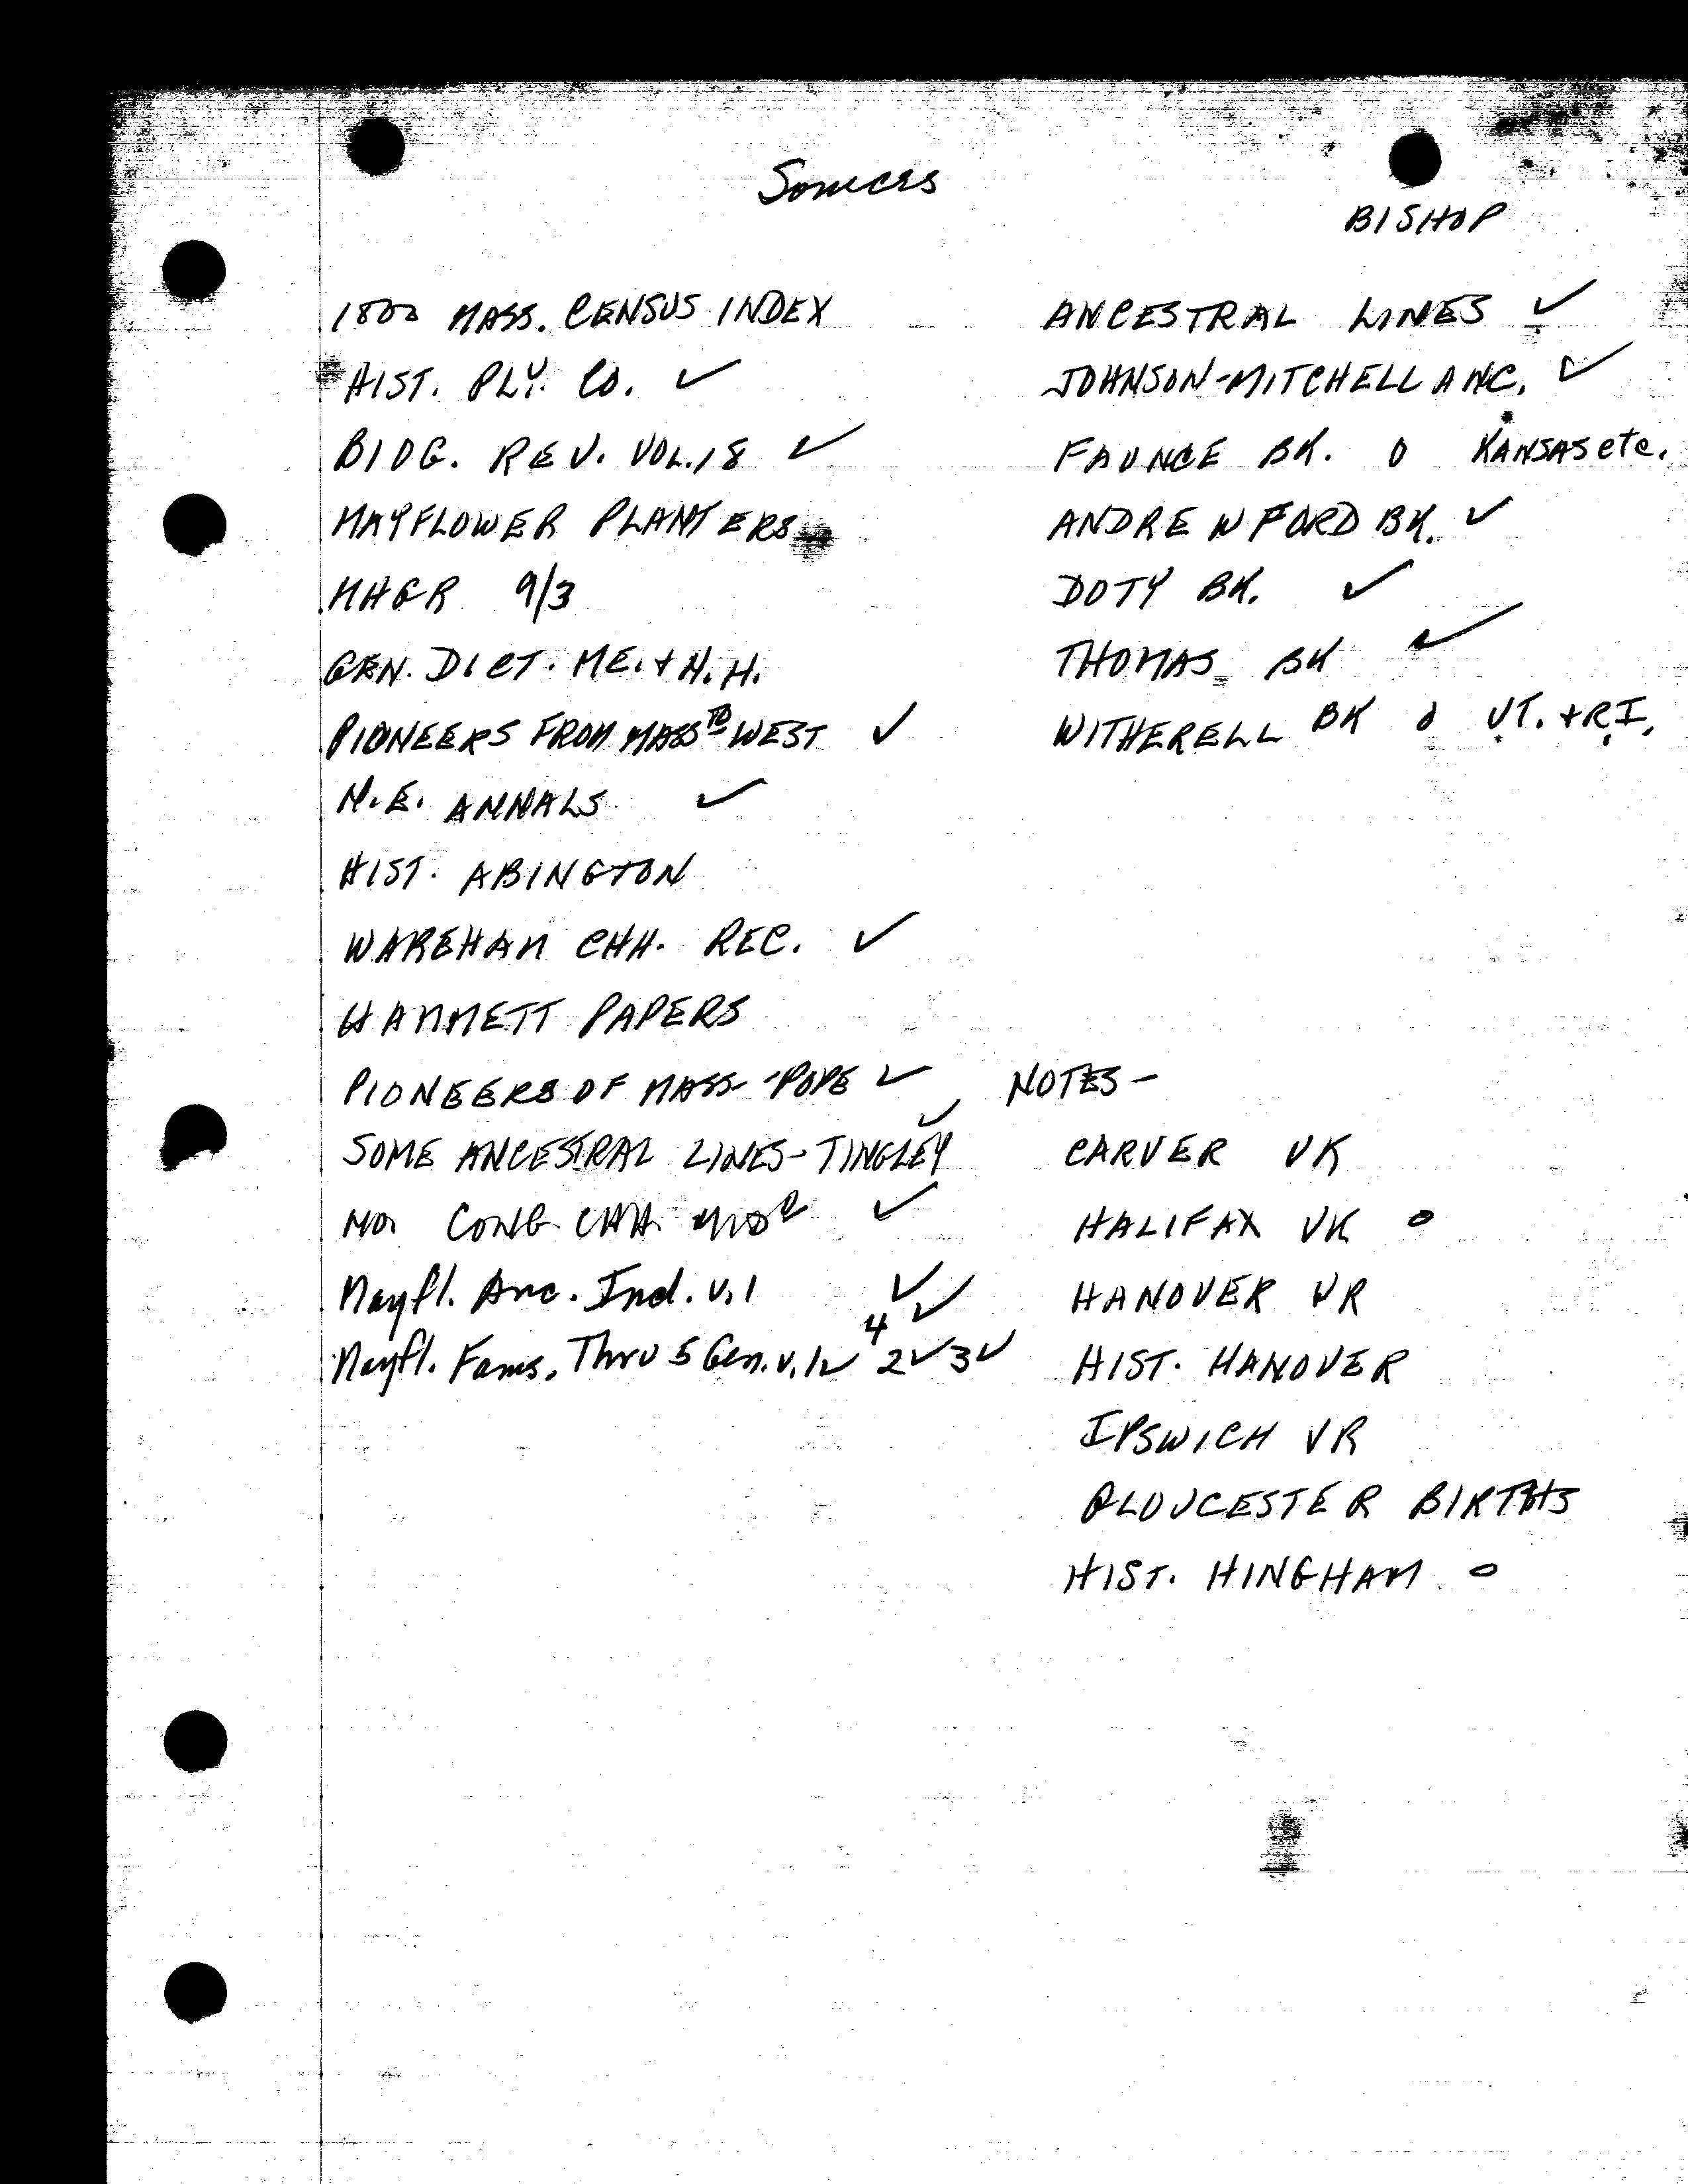 Sources
BISHOP
1800 MASS. CENSUS INDEX
HIST. PLY. CO. ✓
BIOG. REV. VOL. 18 ✓
MAYFLOWER PLANTERS
NHGR 9/3
GEN. DICT. ME. + N.H.
PIONEERS FROM MASS TO WEST ✓
N.E. ANNALS ✓
HIST. ABINGTON
WAREHAM CHH. REC. ✓
HAMMETT PAPERS
PIONEERS OF MASS - POPE ✓
SOME ANCESTRAL LINES - TINGLEY ✓
NO. CONG CHH ✓
Mayfl. Anc. Ind. v.1 ✓
Mayfl. Fams. Thru 5 Gen. v. 1✓ 2✓ 3✓ 4✓
ANCESTRAL LINES ✓
JOHNSON-MITCHELL ANC. ✓
FAUNCE BK. 0 KANSAS etc.
ANDREW FORD BK. ✓
DOTY BK. ✓
THOMAS BK ✓
WITHERELL BK 0 VT. + R.I.
NOTES -
CARVER VR
HALIFAX VR 0
HANOVER VR
HIST. HANOVER
IPSWICH VR
GLOUCESTER BIRTHS
HIST. HINGHAM 0